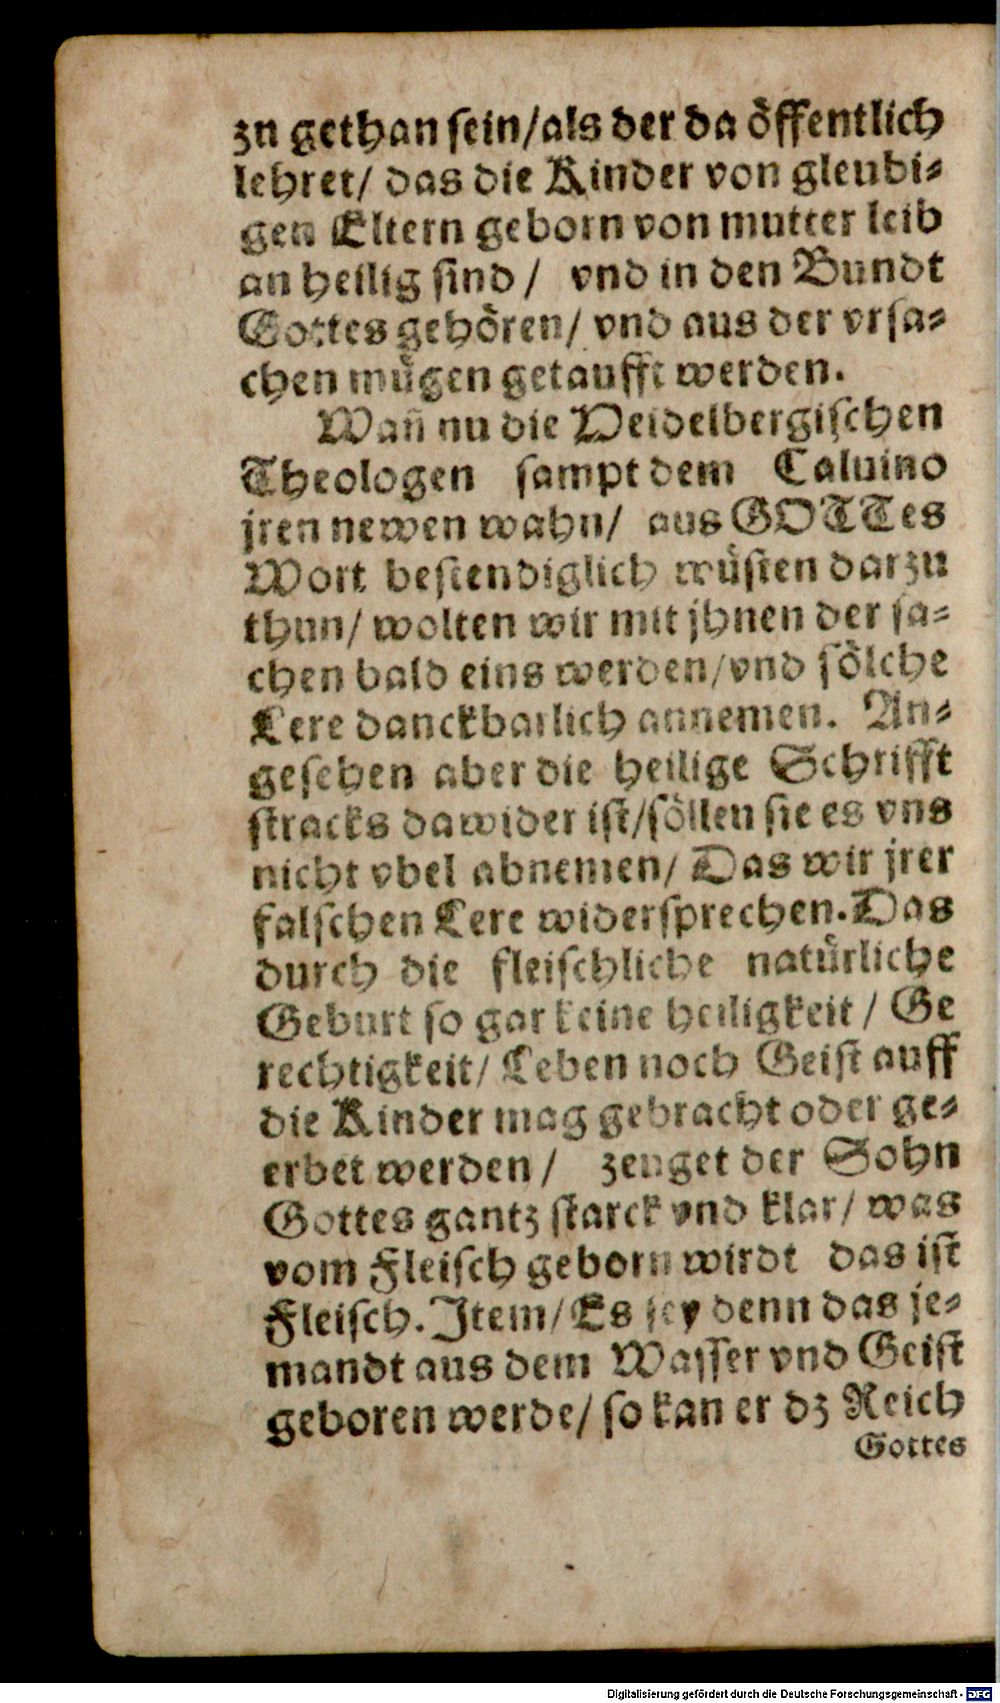 zu gethan sein/als der da öffentlich
lehret/ das die Kinder von gleubi-
gen Eltern geborn von mutter leib
an heilig sind/ vnd in den Bundt
Gottes gehören/ vnd aus der vrsa-
chen mügen getaufft werden.
Wañ nu die Heidelbergischen
Theologen sampt dem Caluino
jren newen wahn/ aus GOTTes
Wort bestendiglich wüsten darzu
thun/ wolten wir mit jhnen der sa-
chen bald eins werden/vnd sölche
Lere danckbarlich annemen. An-
gesehen aber die heilige Schrifft
stracks dawider ist/söllen sie es vns
nicht vbel abnemen/ Das wir jrer
falschen Lere widersprechen. Das
durch die fleischliche natürliche
Geburt so gar keine heiligkeit/ Ge
rechtigkeit/ Leben noch Geist auff
die Kinder mag gebracht oder ge-
erbet werden/ zeuget der Sohn
Gottes gantz starck vnd klar/ was
vom Fleisch geborn wirdt das ist
Fleisch. Item/ Es sey denn das je-
mandt aus dem Wasser vnd Geist
geboren werde/ so kan er dz Reich
Gottes
Digitalisierung gefördert durch die Deutsche Forschungsgemeinschaft - DFG